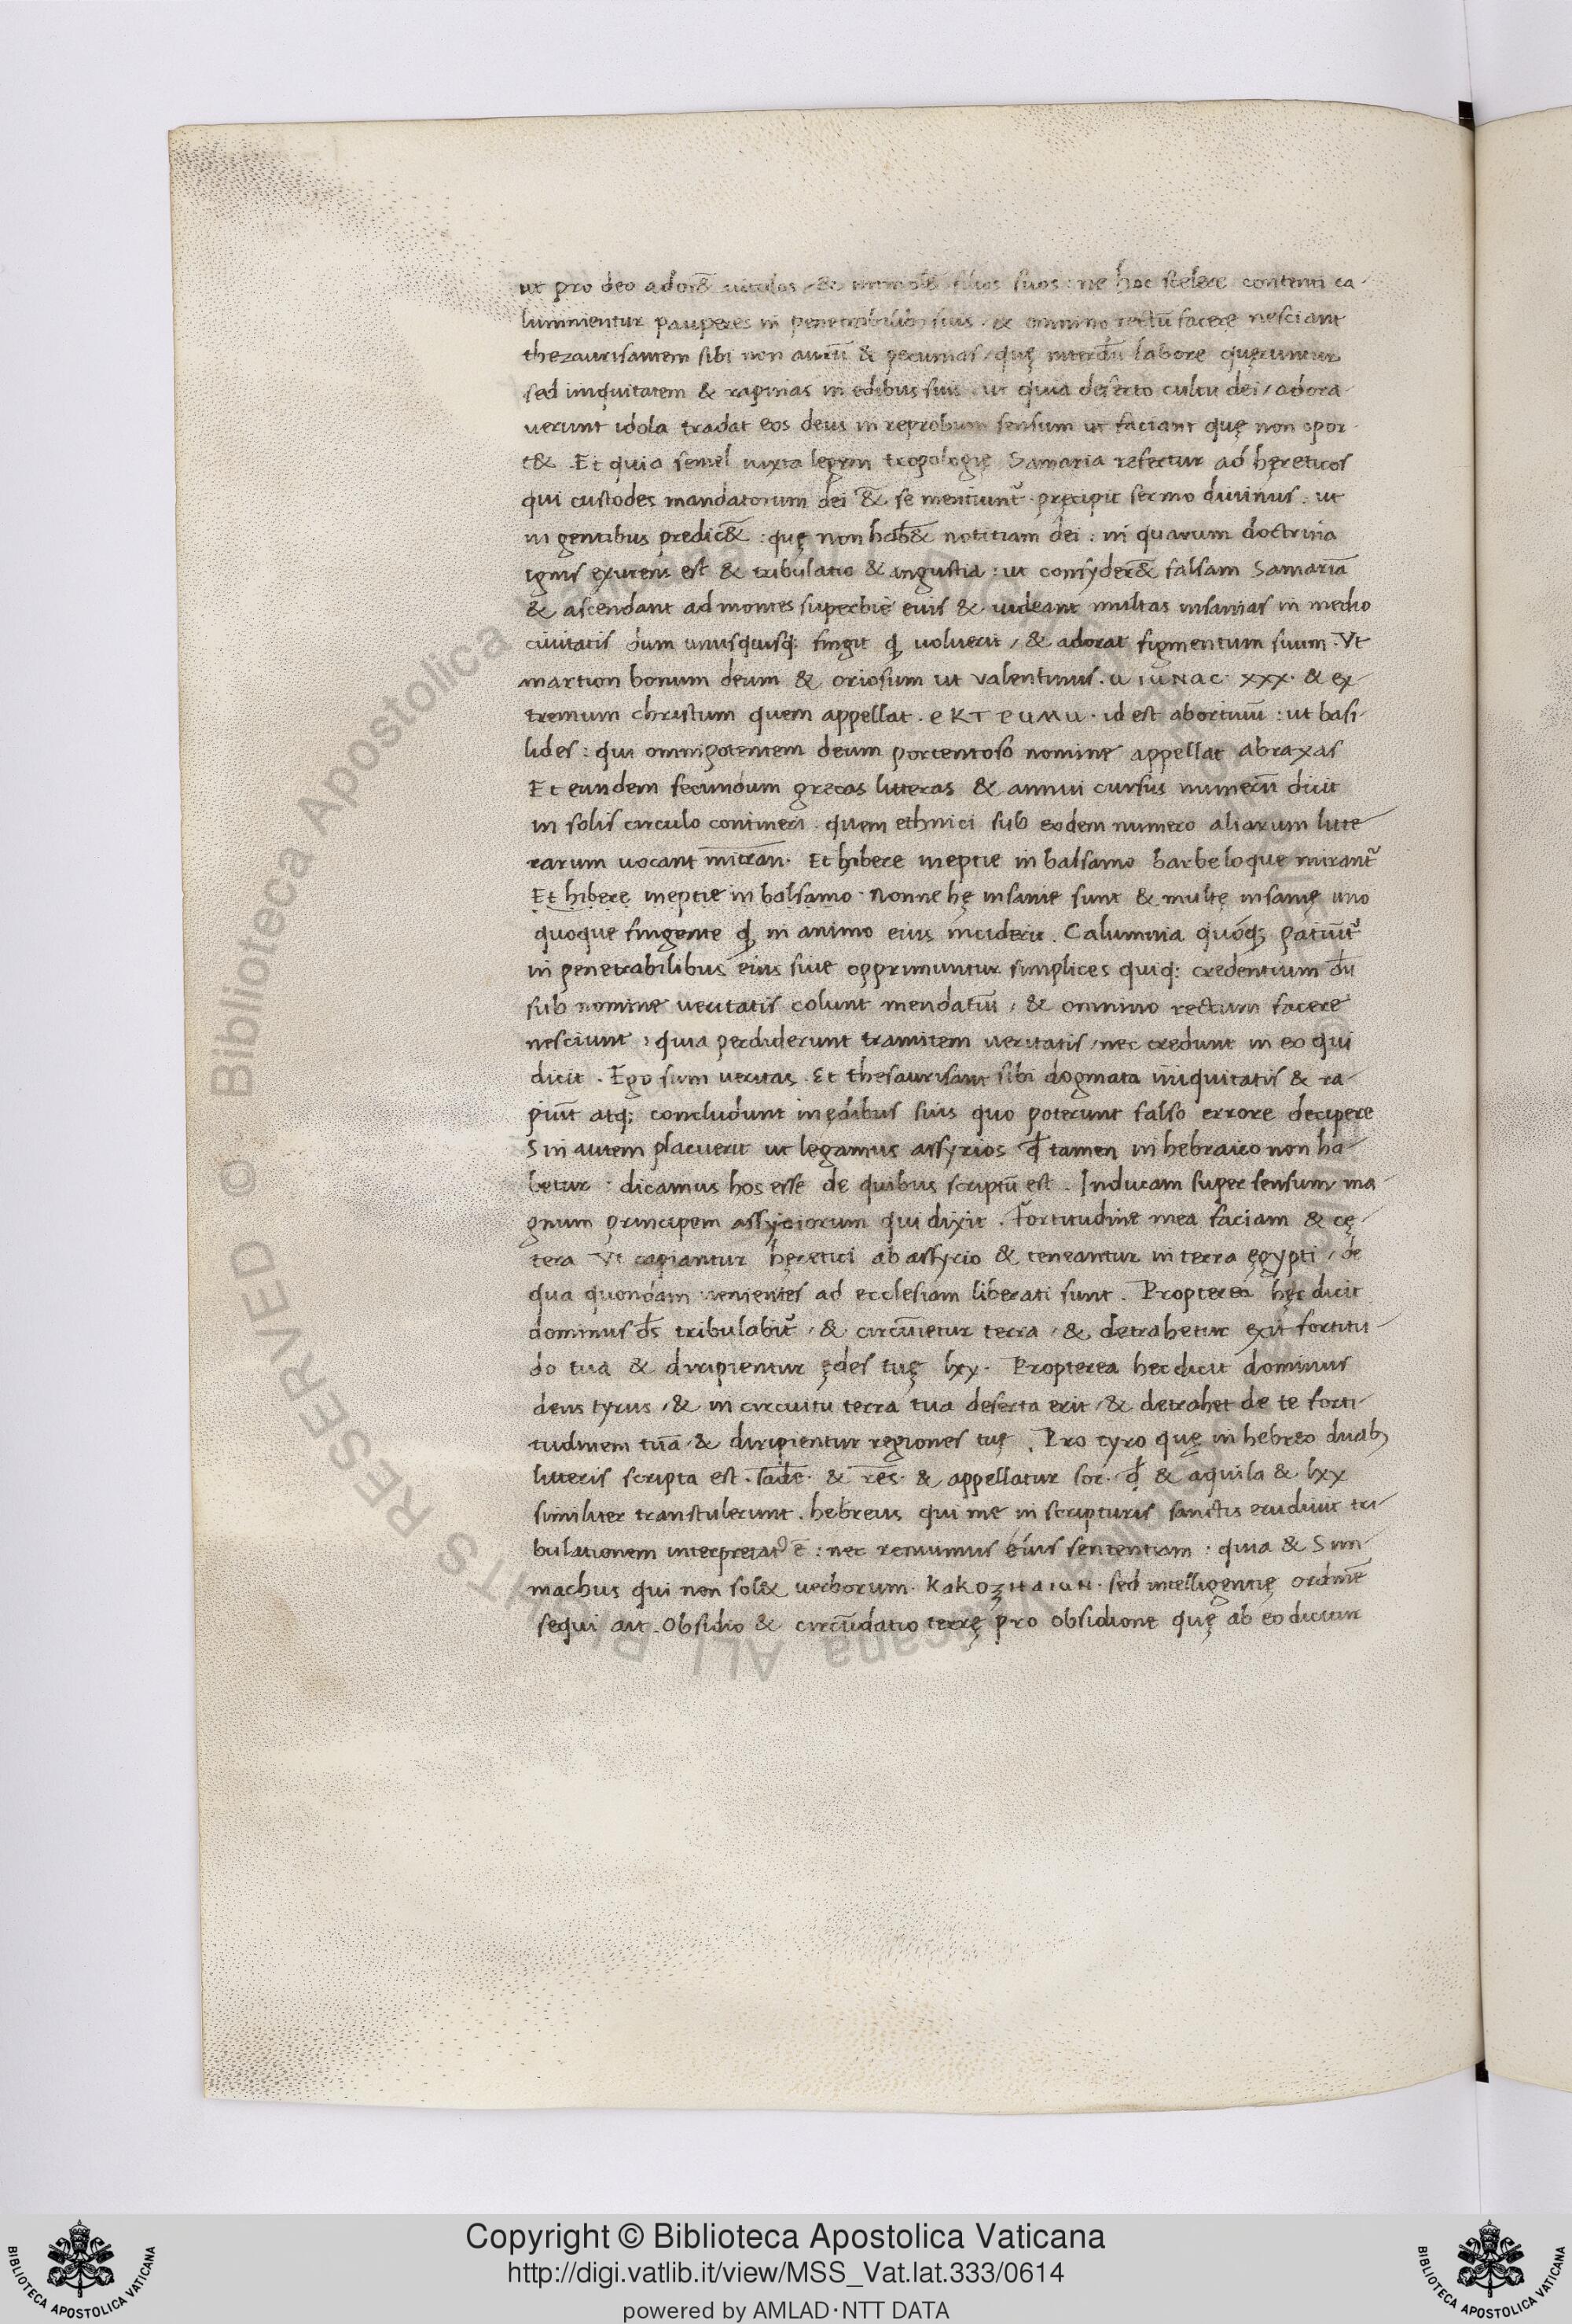 ut pro deo ador&̄ uitulos / & immol&̄ filios suos : ne hoc scelere contenti ca-
lumnientur pauperes in penetrabilibꝫ suis . & omnino rectū facere nesciant
thezaurisantem sibi non aurū & pecunias / quę interdū labore quęruntur
sed iniquitatem & rapinas in edibus suis . ut quia deserto cultu dei / adora-
uerunt idola tradat eos deus in reprobum sensum ut faciant quę non opor-
t& . Et quia semel iuxta legem tropologię Samaria refertur ad hęreticos
qui custodes mandatorum dei &̄ se mentiunt᷑ . pręcipit sermo diuinus . ut
in gentibus predic&̄ : quę non hab&̄ notitiam dei : in quarum doctrina
ignis exurens est & tribulatio & angustia : ut consyder&̄ falsam Samariā
& ascendant ad montes superbię eius & uideant multas insanias in medio
ciuitatis dum unusquisqꝫ fingit ꝙ uoluerit / & adorat figmentum suum . Vt
martion bonum deum & oriosum ut Valentinus . u iuNac xxx . & ex-
tremum christum quem appellat . eKTeuMu . id est abortiuū : ut basi-
lides : qui omnipotentem deum portentoso nomine appellat abraxas
Et eundem secundum grecas litteras & annui cursus numerū dicit
in solis circulo contineri . quem ethnici sub eodem numero aliarum litte-
rarum uocant mitran . Et hibere ineptie in balsamo barbeloque mirant᷑
Et hibere ineptie in balsamo . Nonne hę insanie sunt & multę insanię uno
quoque fingente ꝙ in animo eius inciderit . Calumnia quóqꝫ patiunt᷑
in penetrabilibus eius siue opprimuntur simplices quiqꝫ credentium dū
sub nomine ueritatis colunt mendatiū / & omnino rectum facere
nesciunt : quia perdiderunt tramitem ueritatis / nec credunt in eo qui
dicit . Ego sum ueritas . Et thesaurisant sibi dogmata iniquitatis & ra-
piūt atqꝫ concludunt in ędibus suis quo poterunt falso errore decipere
Sin autem placuerit ut legamus assyrios qđ tamen in hebraico non ha-
betur : dicamus hos esse de quibus scriptū est . Inducam super sensum ma-
gnum principem assyriorum qui dixit . Fortitudine mea faciam & cę-
tera Vt capiantur hęretici ab assyrio & teneantur in terra ęgypti / de
qua quondam uenientes ad ecclesiam liberati sunt . Propterea hęc dicit
dominus ds̄ tribulabit᷑ / & circūietur terra / & detrahetur exit fortitu-
do tua & diripientur ędes tuę lxx . Propterea hec dicit dominus
deus tyrus / & in circuitu terra tua deserta erit / & detrahet de te forti-
tudinem tuā & diripientur regiones tuę . Pro tyro quę in hebreo duabꝫ
litteris scripta est . sade . & res . & appellatur sor . qđ & aquila & lxx
similiter transtulerunt . hebreus qui me in scripturis sanctis erudiuit tri-
bulationem interpretat᷑ ē : nec renuimus eius sententiam : quia & Sim-
machus qui non sol& uerborum . KaKOZHaiuN . sed intelligentię ordinē
sequi ait . Obsidio & circūdatio terrę pro obsidione quę ab eo dicitur
Copyright © Biblioteca Apostolica Vaticana
http://digi.vatlib.it/view/MSS_Vat.lat.333/0614
powered by AMLAD·NTT DATA